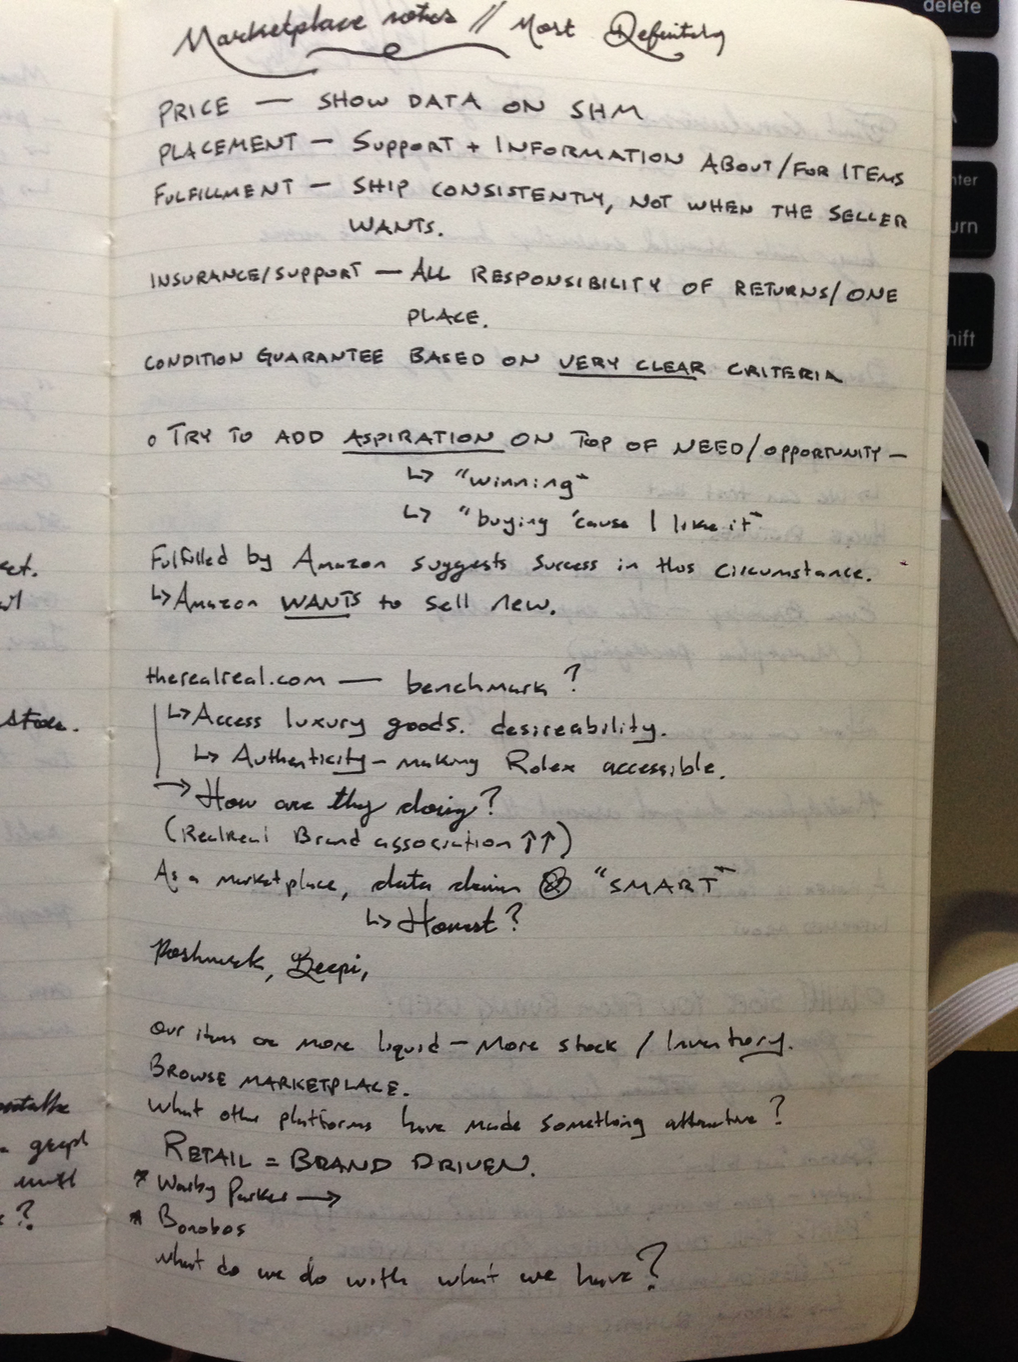 Marketplace notes // Most Definitely
PRICE — SHOW DATA ON SHM
PLACEMENT — SUPPORT + INFORMATION ABOUT/FOR ITEMS
FULFILLMENT — SHIP CONSISTENTLY, NOT WHEN THE SELLER
WANTS.
INSURANCE/SUPPORT — ALL RESPONSIBILITY OF RETURNS/ONE
PLACE.
CONDITION GUARANTEE BASED ON VERY CLEAR CRITERIA
o TRY TO ADD ASPIRATION ON TOP OF NEED/OPPORTUNITY —
↳ "winning"
↳ "buying 'cause I like it"
Fulfilled by Amazon suggests success in this circumstance.
↳ Amazon WANTS to sell new.
therealreal.com — benchmark?
↳ Access luxury goods. desireability.
↳ Authenticity — making Rolex accessible.
→ How are they doing?
(RealReal Brand association ↑↑)
As a marketplace, data driven "SMART"
↳ Honest?
Poshmark, Beepi,
Our items are more liquid — More stock / Inventory.
BROWSE MARKETPLACE.
What other platforms have made something attractive?
RETAIL = BRAND DRIVEN.
* Warby Parker →
* Bonobos
What do we do with what we have?
delete
enter
urn
hift
store.
graph
until